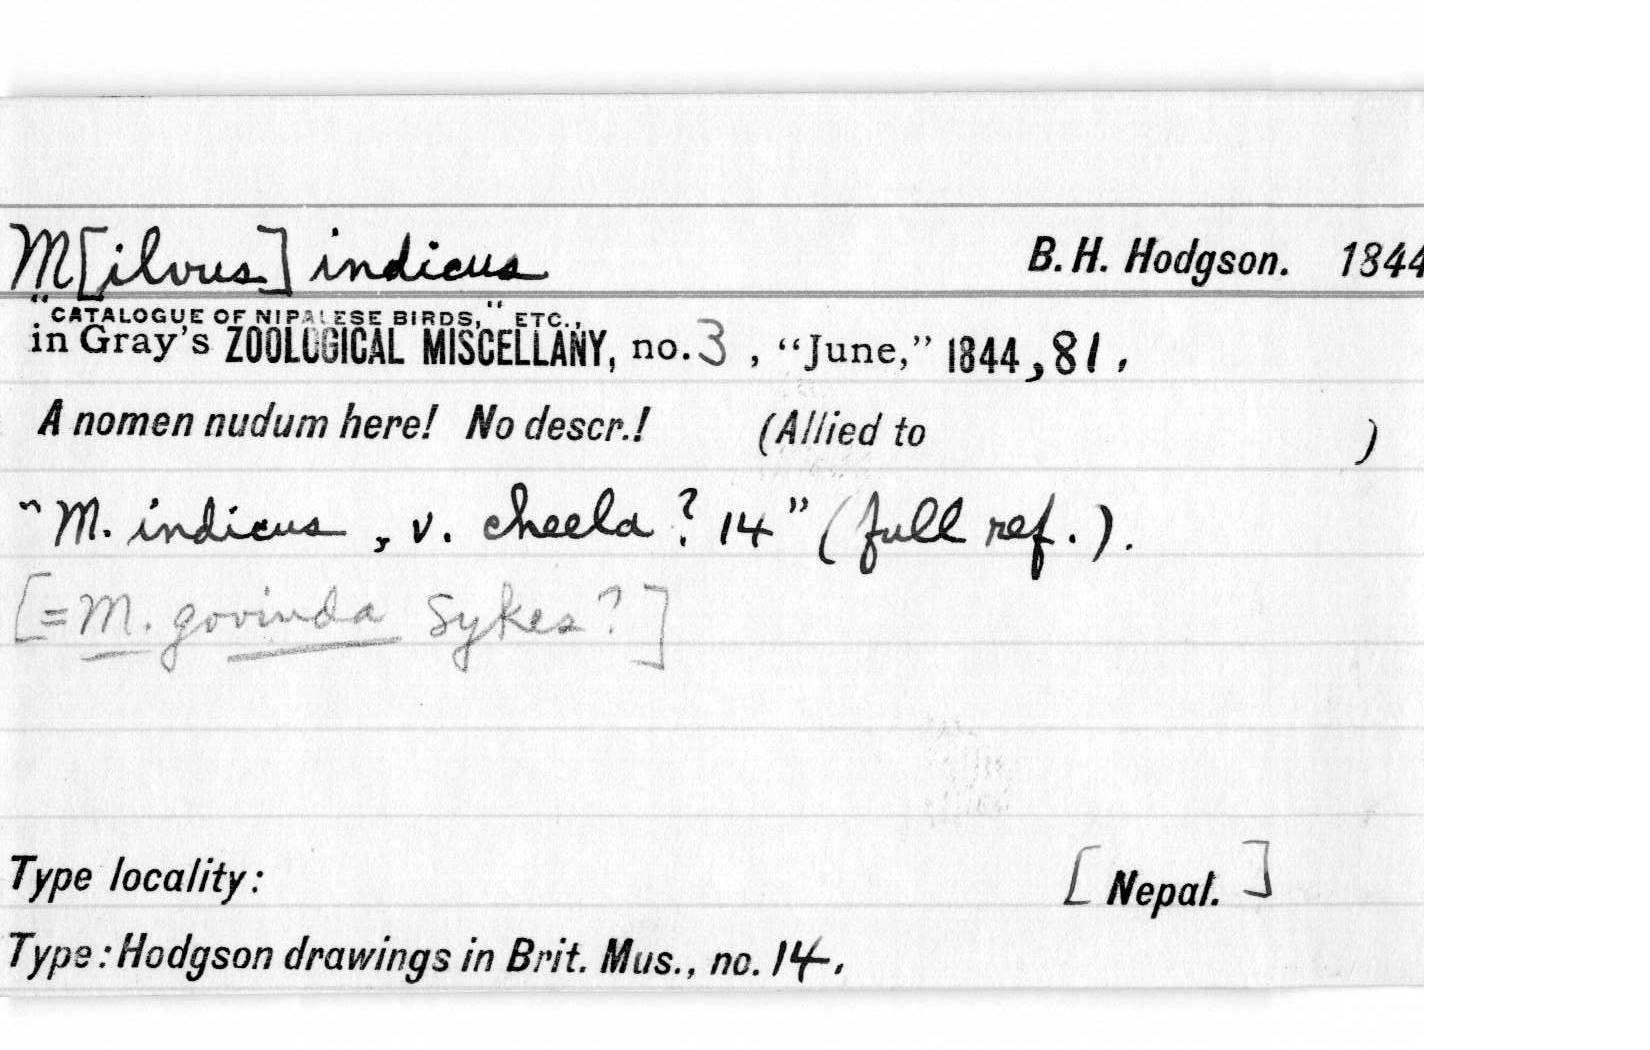 M[ilvus] indicus B. H. Hodgson. 1844
"CATALOGUE OF NIPALESE BIRDS," ETC.,
in Gray's ZOOLOGICAL MISCELLANY, no. 3, "June," 1844, 81.
A nomen nudum here! No descr.! (Allied to )
"M. indicus, v. cheela? 14" (full ref.).
[=M. govinda Sykes?]
Type locality: [Nepal.]
Type: Hodgson drawings in Brit. Mus., no. 14.